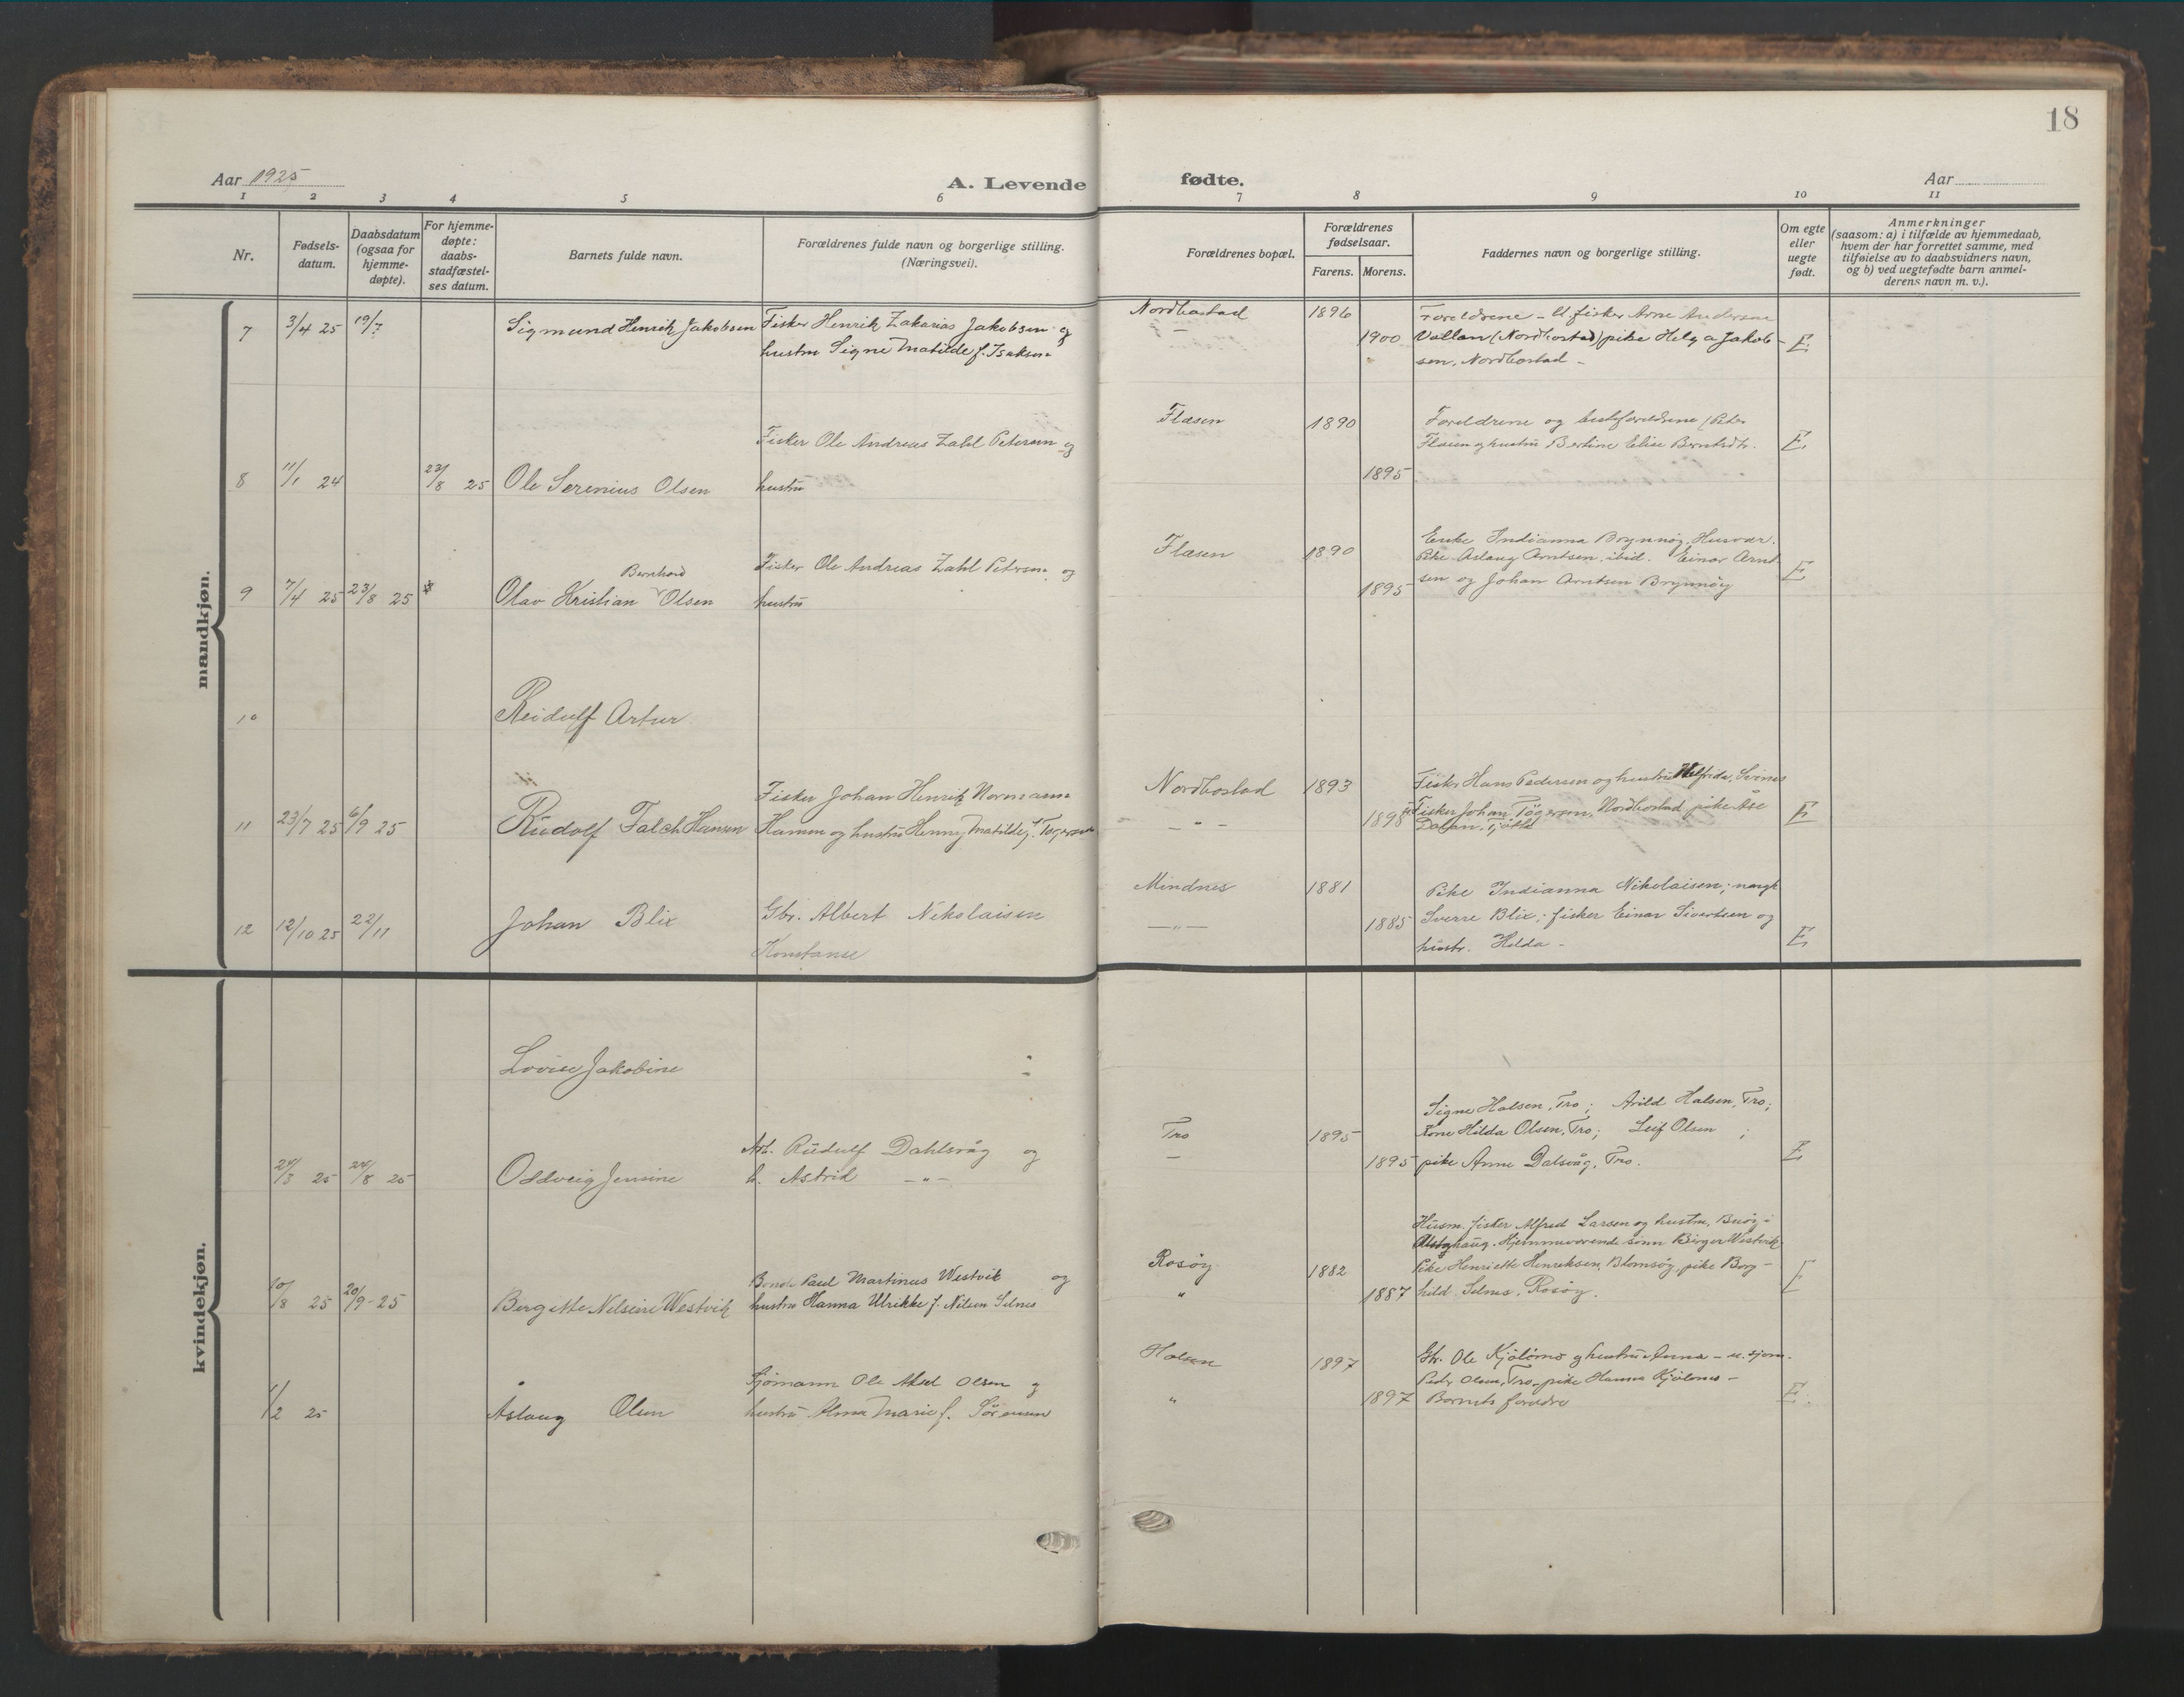 18
Aar 1925
A. Levende fødte.
Aar
1 2 3 4 5 6 7 8 9 10 11
Nr.
Fødsels-
datum.
Daabsdatum
(ogsaa for
hjemme-
døpte).
For hjemme-
døpte:
daabs-
stadfæstel-
ses datum.
Barnets fulde navn.
Forældrenes fulde navn og borgerlige stilling.
(Næringsvei).
Forældrenes bopæl.
Forældrenes
fødselsaar.
Farens. Morens.
Faddernes navn og borgerlige stilling.
Om egte
eller
uegte
født.
Anmerkninger
(saasom: a) i tilfælde av hjemmedaab,
hvem der har forrettet samme, med
tilføielse av to daabsvidners navn,
og b) ved uegtefødte barn anmel-
derens navn m. v.).
mandkjøn.
7 3/4 25 19/7 Sigmund Henrik Jakobsen
Fisker Henrik Zakarias Jakobsen og
hustru Signe Matilde f. Isaksen
Nordbostad 1896
— 1900
Foreldrene - U. fisker Arne Andersen
Vollan (Nordbostad) pike Helga Jakob-
sen, Nordbostad -
E
8 11/1 24 23/8 25 Ole Serenius Olsen
Fisker Ole Andreas Zahl Petersen og
hustru
Flasen 1890
1895
Foreldrene og besteforeldrene (Peter
Flasen og hustru Bertine Elise Berntsdtr.
E
9 7/4 25 23/8 25
Bernhard
Olav Kristian Olsen
Fisker Ole Andreas Zahl Petersen og
hustru
Flasen 1890
1895
Enke Indianna Brynnøy, Husvær.
Pike Aslaug Arntsen, ibid. Einar Arnt
sen og Johan Arntsen Brynnøy
E
10 Reidulf Artur
11 23/7 25 6/9 25 Rudolf Falch Hansen
Fisker Johan Henrik Normann
Hamm og hustru Henny Matilde f. Tøgersen
Nordbostad 1893
— " — 1898
Fisker Hans Pedersen og hustru Halfrida, Svines
Fisker Johan Tøgersen, Nordbostad, pike Åse
Dalan, Tjøtta
E
12 12/10 25 22/11 Johan Blix
Gbr. Albert Nikolaisen
Konstanse
Mindnes 1881
— " — 1885
Pike Indianna Nikolaisen; ungk
Sverre Blix; fisker Einar Sivertsen og
hustr. Hilda -
E
kvindekjøn.
Lovise Jakobine
24/3 25 24/8 25 Oddveig Jensine
Arb. Rudulf Dahlsvåg og
h. Astrid — " —
Tro 1895
— 1895
Signe Halsen, Tro; Arild Halsen, Tro;
Kone Hilda Olsen, Tro; Leif Olsen ;
pike Anne Dalsvåg, Tro.
E
10/8 25 20/9 - 25 Bergitte Nelsine Westvik
Bonde Paul Martinus Westvik og
hustru Hanna Ulrikke f. Nilsen Selnes
Rosøy 1882
" 1887
Husm. fisker Alfred Larsen og hustru,
Alstahaug. Hjemmeværende sønn Birger Westvik
Pike Henriette Henriksen, Blomsøy, pike Borg-
hild Selnes, Rosøy.
E
1/2 25 Aslaug Olsen
Sjømann Ole Aksel Olsen og
hustru Alma Marie f. Sørensen
Halsen 1897
" 1897
Gbr. Ole Kjølsnes og hustru Anna - u. sjøm.
Peder Olsen, Tro, pike Hanna Kjølsnes -
Barnets foreldre
E.